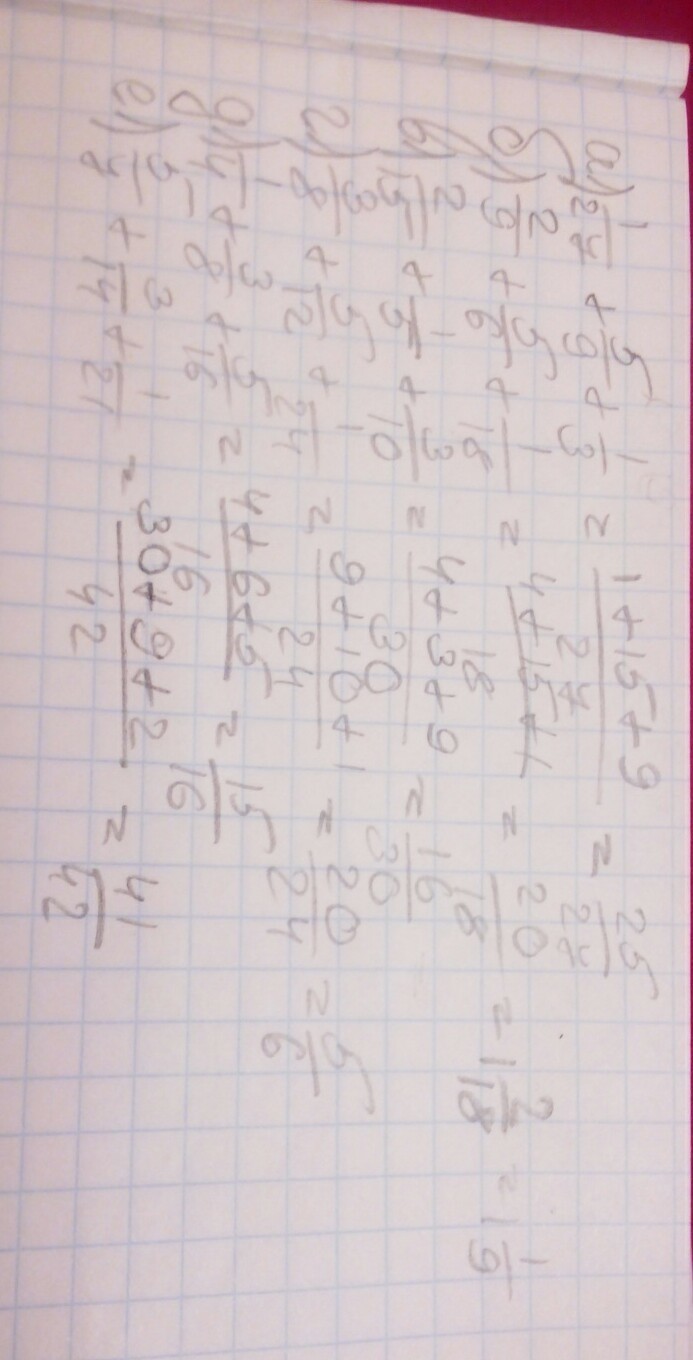 а) 1/27 + 5/9 + 1/3 = (1+15+9)/27 = 25/27
б) 2/9 + 5/6 + 1/18 = (4+15+1)/18 = 20/18 = 1 2/18 = 1 1/9
в) 2/15 + 1/5 + 3/10 = (4+3+9)/30 = 16/30
г) 3/8 + 5/12 + 1/24 = (9+10+1)/24 = 20/24 = 5/6
д) 1/4 + 3/8 + 5/16 = (4+6+5)/16 = 15/16
е) 5/7 + 3/14 + 1/21 = (30+9+2)/42 = 41/42